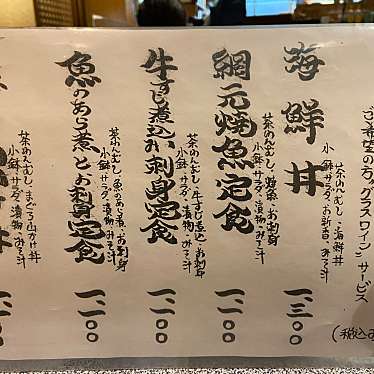 ご希望の方"グラスワイン"サービス
(税込み
海鮮丼
茶わんむし・海鮮丼
小鉢・サラダ・お新香・みそ汁
一、三〇〇
網元焼魚定食
茶わんむし・焼魚・お刺身
小鉢・サラダ・漬物・みそ汁
一、二〇〇
牛すじ煮込み刺身定食
茶わんむし・牛すじ煮込・お刺身
小鉢・サラダ・漬物・みそ汁
一、二〇〇
魚のあら煮とお刺身定食
茶わんむし・魚のあら煮・お刺身
小鉢・サラダ・漬物・みそ汁
一、二〇〇
茶わんむし・まぐろ山かけ丼
小鉢・サラダ・漬物・みそ汁
一、二〇〇